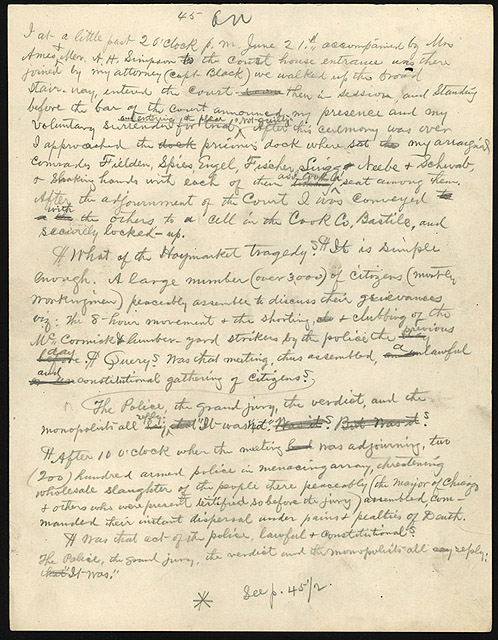 45
I at a little past 2 o'clock p.m. June 21st, accompanied by Mrs
Ames & Mrs. A. H. Simpson to the Court house entrance was there
joined by my attorney (capt. Black) we walked up the broad
stair-way, entered the court then in session, and standing
before the bar of the court announced my presence and my
entering the plea, "not guilty."
voluntary surrender for trial. After this ceremony was over
I approached the dock prisoners' dock where sat my arraigned
comrades Fielden, Spies, Engel, Fischer, Lingg & Neebe & Schwab,
& shaking hands with each of them as I took a seat among them.
After the adjournment of the Court I was conveyed to
with the others to a cell in the Cook Co, Bastile, and
securily locked-up.
What of the Haymarket tragedy? It is simple
enough. A large number (over 3000) of citizens (mostly
workingmen) peaceably assemble to discuss their grievances,
viz: the 8-hour movement & the shooting & clubbing of the
McCormick & lumber-yard strikers by the police the previous
day. Query? Was that meeting, thus assembled, a lawful
and constitutional gathering of citizens?
The Police, the grand jury, the verdict, and the
monopolists all "It was not" Was it? But was it?
After 10 o'clock when the meeting had was adjourning, two
(200) hundred armed police in menacing array, threatening
wholesale slaughter of the people there peaceably (the mayor of Chicago
& others who were present testified so before the jury) assembled com-
manded their instant dispersal under pains & pealties of Death.
Was that act of the police, lawful & constitutional?
The Police, the grand jury, the verdict and the monopolists all reply:
that "It was."
See p. 45 1/2.